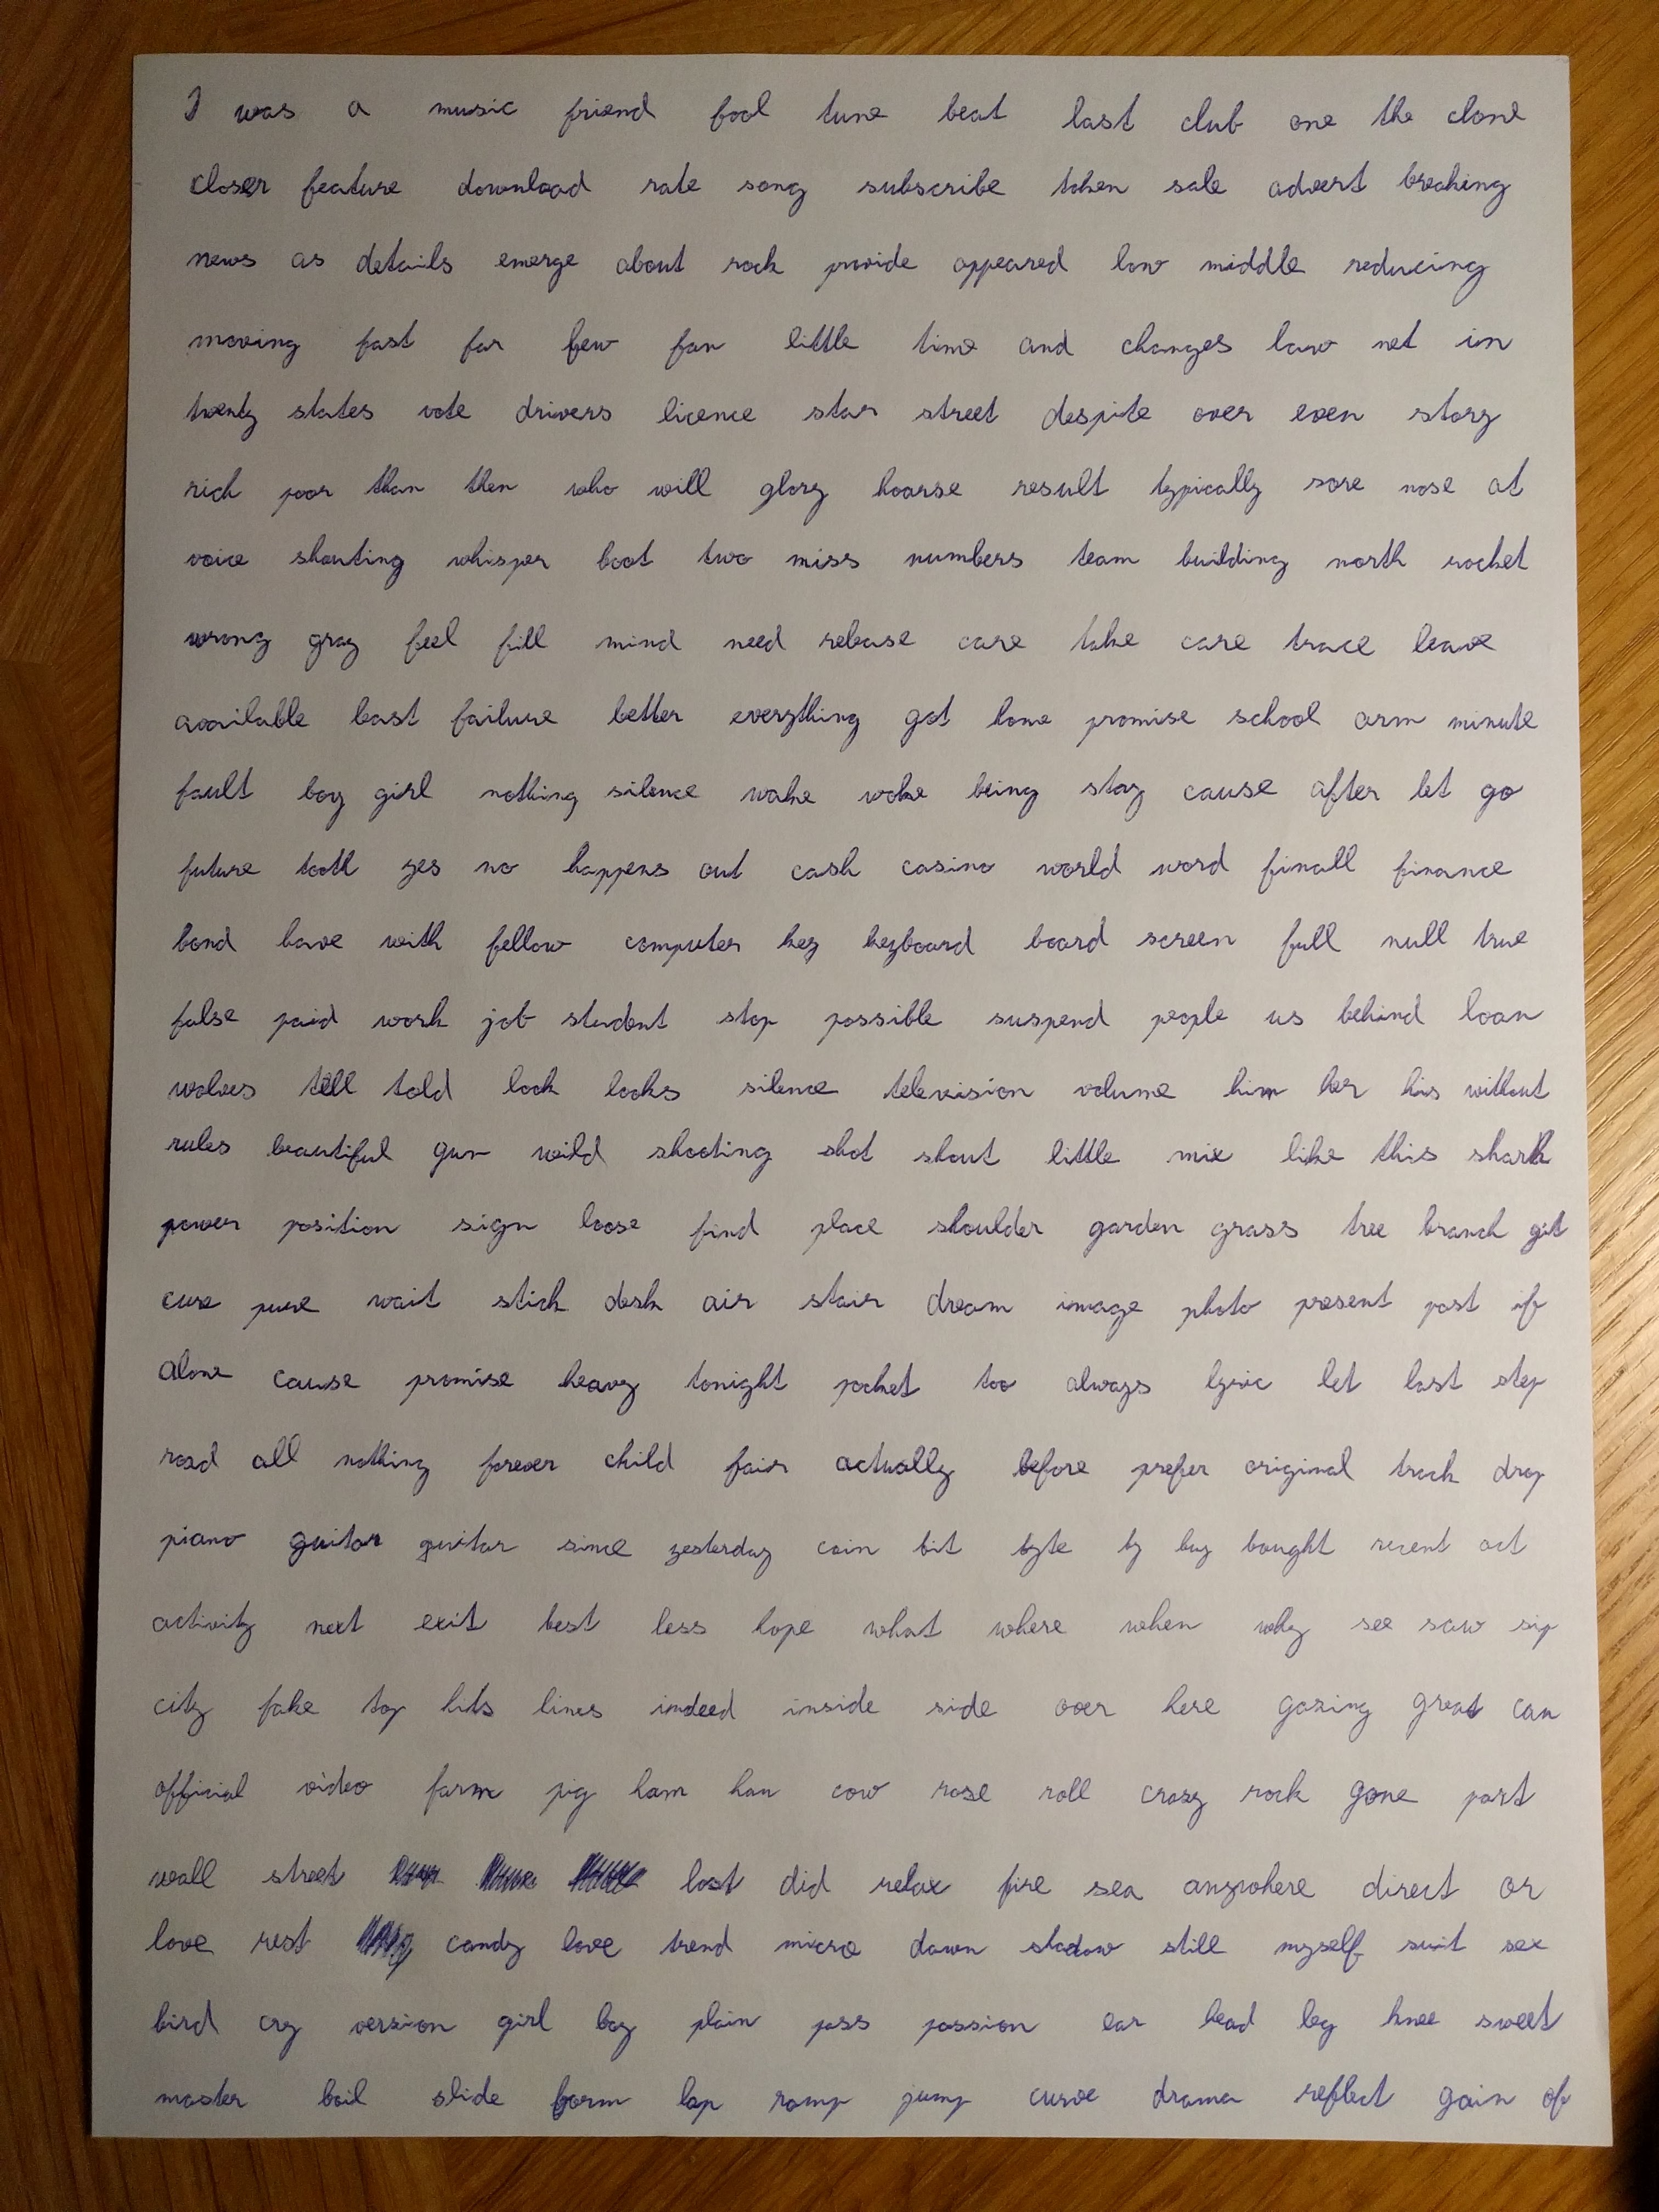 I was a music friend fool tune beat last club one the clone
closer feature download rate song subscribe token sale advert breaking
news as details emerge about rock provide appeared low middle reducing
moving fast far few fan little time and changes law net in
twenty states vote drivers licence star street despite over even story
rich poor than then who will glory hoarse result typically sore nose at
voice shouting whisper boot two miss numbers team building north rocket
wrong gray feel fill mind need release care take care trace leave
available least failure better everything got home promise school arm minute
fault boy girl nothing silence wake woke being stay cause after let go
future tooth yes no happens out cash casino world word finall finance
bond have with fellow computer key keyboard board screen full null true
false paid work job student stop possible suspend people us behind loan
wolves tell told lock locks silence television volume him her his without
rules beautiful gun wild shooting shot shout little mix like this shark
power position sign loose find place shoulder garden grass tree branch git
cure pure wait stick desk air stair dream image photo present past if
alone cause promise heavy tonight pocket too always lyric let last step
road all nothing forever child fair actually before prefer original track drop
piano guitar guitar since yesterday coin bit byte by buy bought recent act
activity next exit best less hope what where when why see saw sip
city fake top hits lines indeed inside side over here gazing great can
official video farm pig ham han cow rose roll crazy rock gone part
wall street lost did relax fire sea anywhere direct or
love rest candy love trend micro down shadow still myself suit sex
bird cry version girl boy plain pass passion ear head leg knee sweet
master bail slide form lap ramp jump curve drama reflect gain of